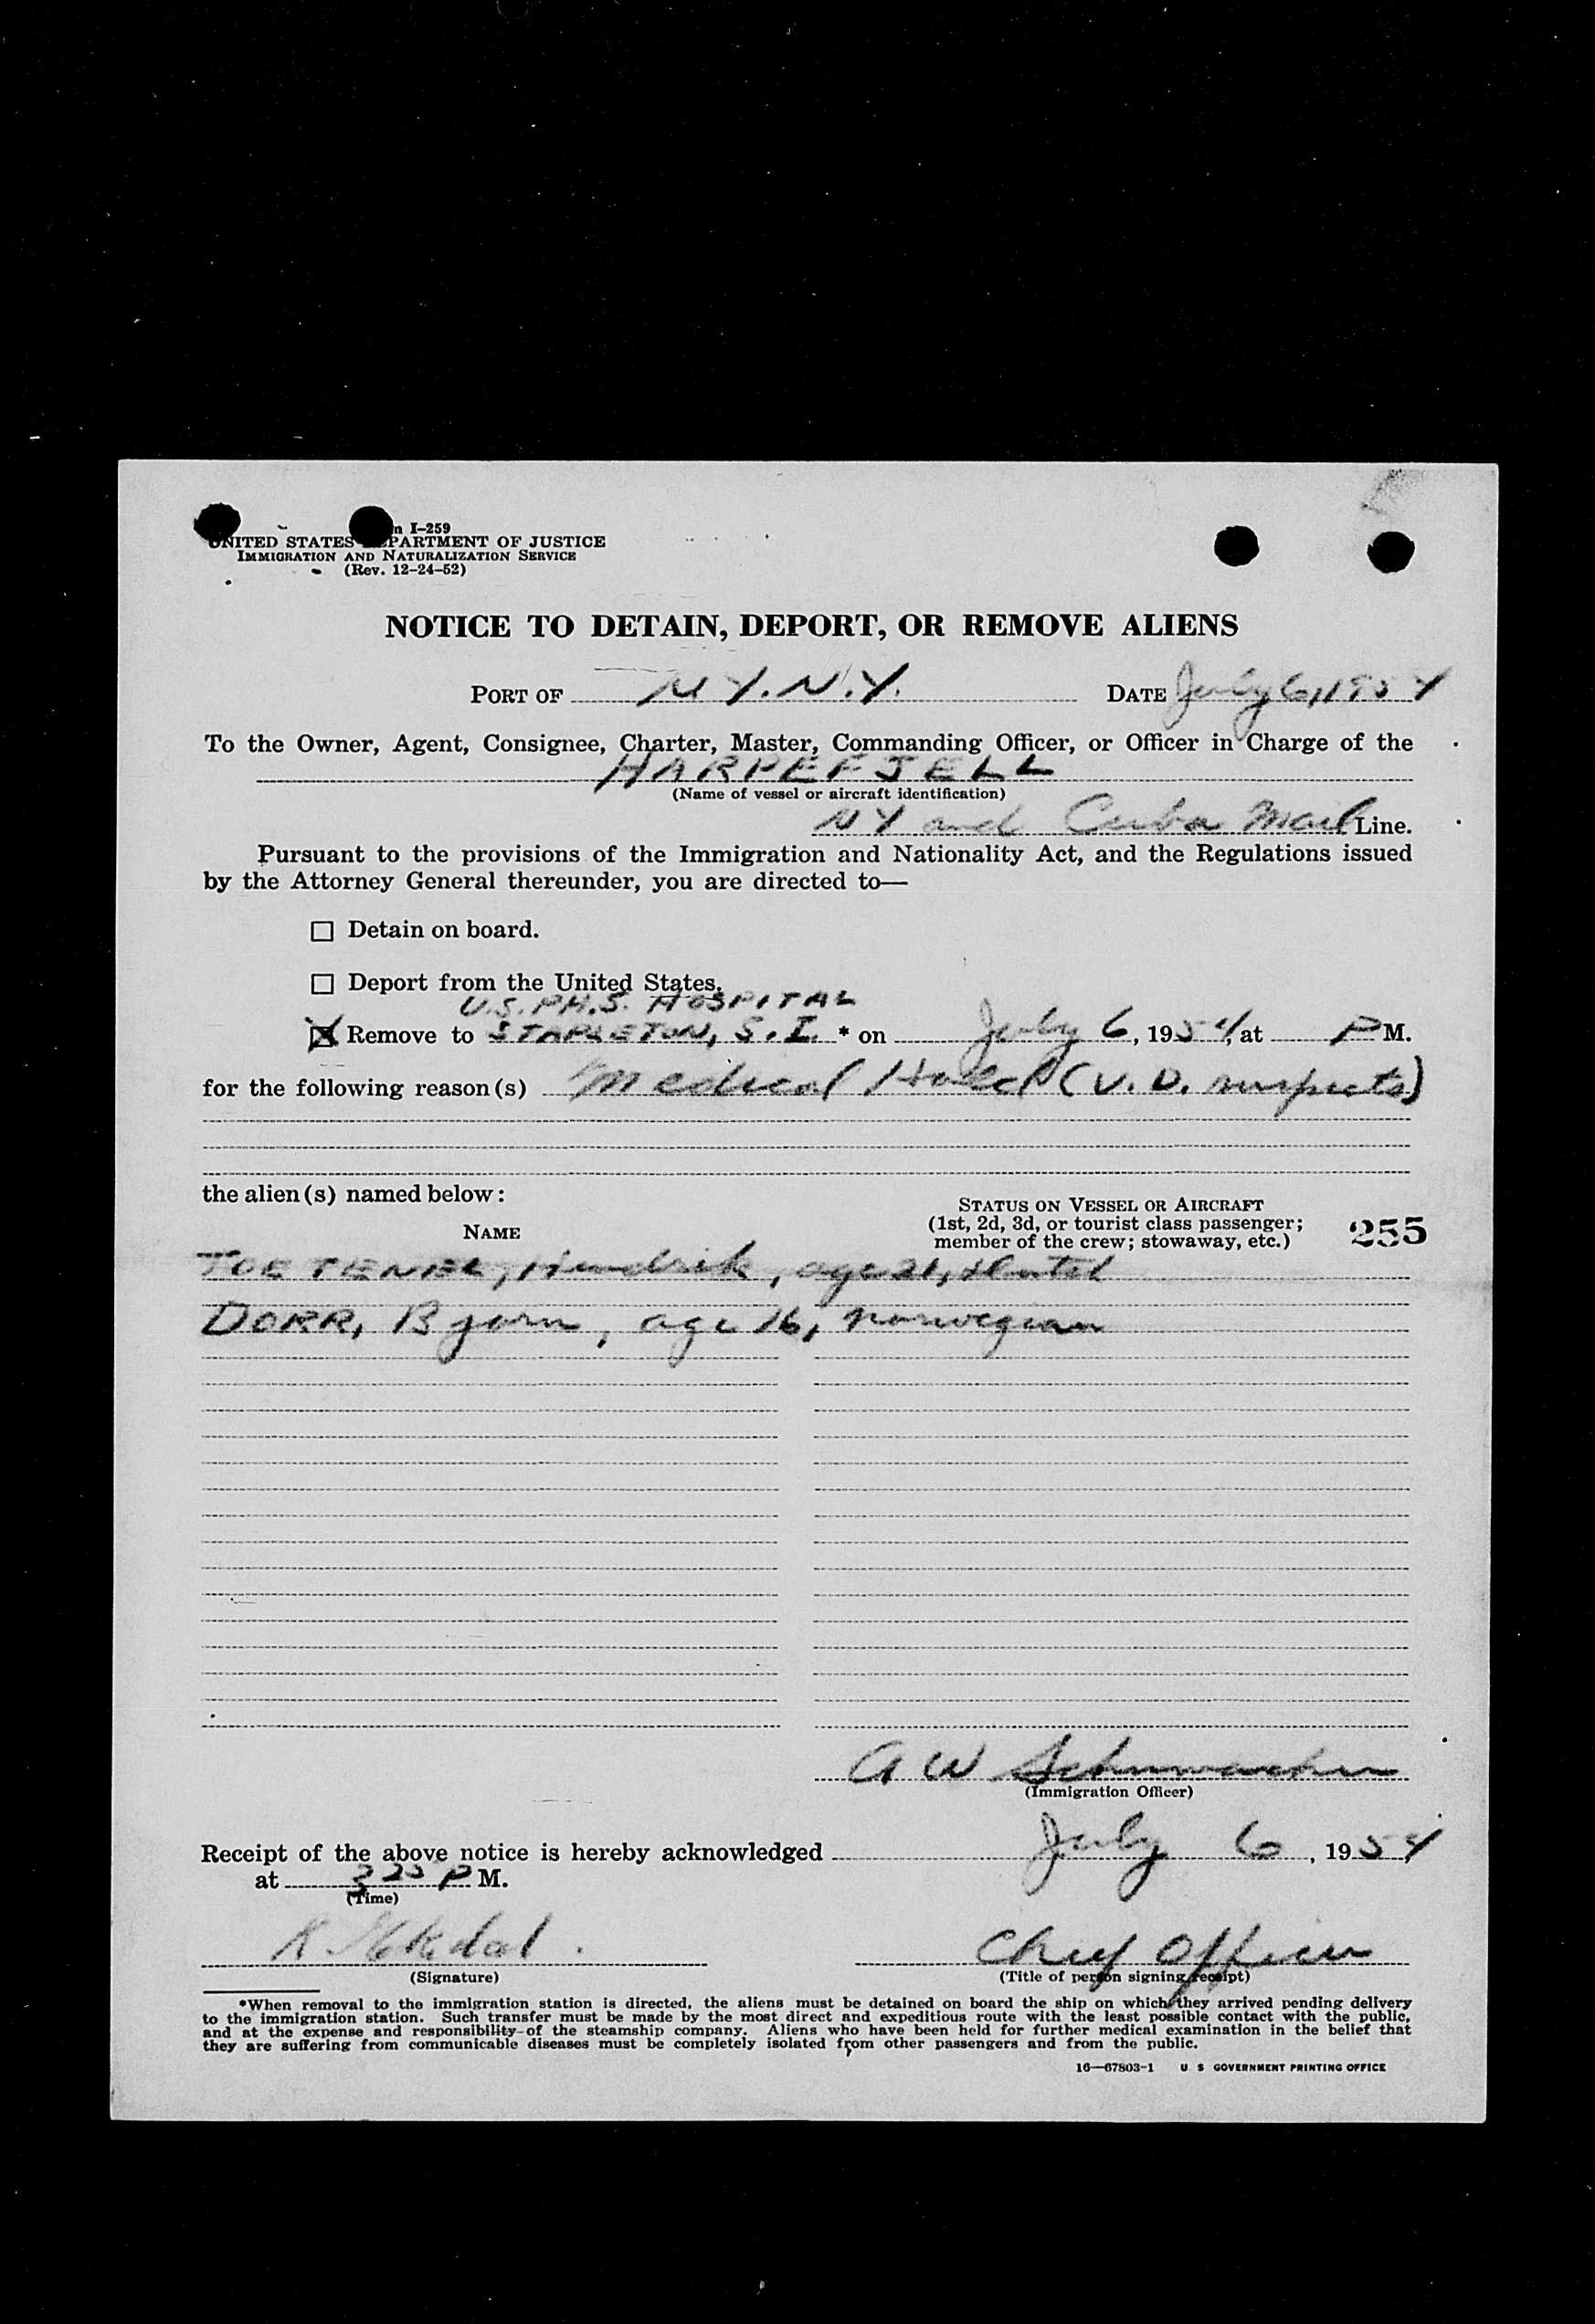 n I-259
UNITED STATES DEPARTMENT OF JUSTICE
IMMIGRATION AND NATURALIZATION SERVICE
(Rev. 12-24-52)
NOTICE TO DETAIN, DEPORT, OR REMOVE ALIENS
PORT OF NY. N.Y. DATE July 6, 1954
To the Owner, Agent, Consignee, Charter, Master, Commanding Officer, or Officer in Charge of the
HARPEFJELL
(Name of vessel or aircraft identification)
NY and Cuba Mail Line.
Pursuant to the provisions of the Immigration and Nationality Act, and the Regulations issued
by the Attorney General thereunder, you are directed to—
Detain on board.
Deport from the United States.
U.S. PH.S. HOSPITAL
Remove to STAPLETON, S.I. * on July 6, 1954, at P M.
for the following reason(s) Medical Hold (V.D. suspects)
the alien(s) named below:
NAME
STATUS ON VESSEL OR AIRCRAFT
(1st, 2d, 3d, or tourist class passenger;
member of the crew; stowaway, etc.)
255
Hendrik, age 21,
DORR, Bjorn, age 16, norwegian
A W Schumacher
(Immigration Officer)
Receipt of the above notice is hereby acknowledged July 6, 1954
at 325 P M.
(Time)
K.
(Signature)
Chief Officer
(Title of person signing receipt)
*When removal to the immigration station is directed, the aliens must be detained on board the ship on which they arrived pending delivery
to the immigration station. Such transfer must be made by the most direct and expeditious route with the least possible contact with the public,
and at the expense and responsibility of the steamship company. Aliens who have been held for further medical examination in the belief that
they are suffering from communicable diseases must be completely isolated from other passengers and from the public.
16—67803-1 U S GOVERNMENT PRINTING OFFICE